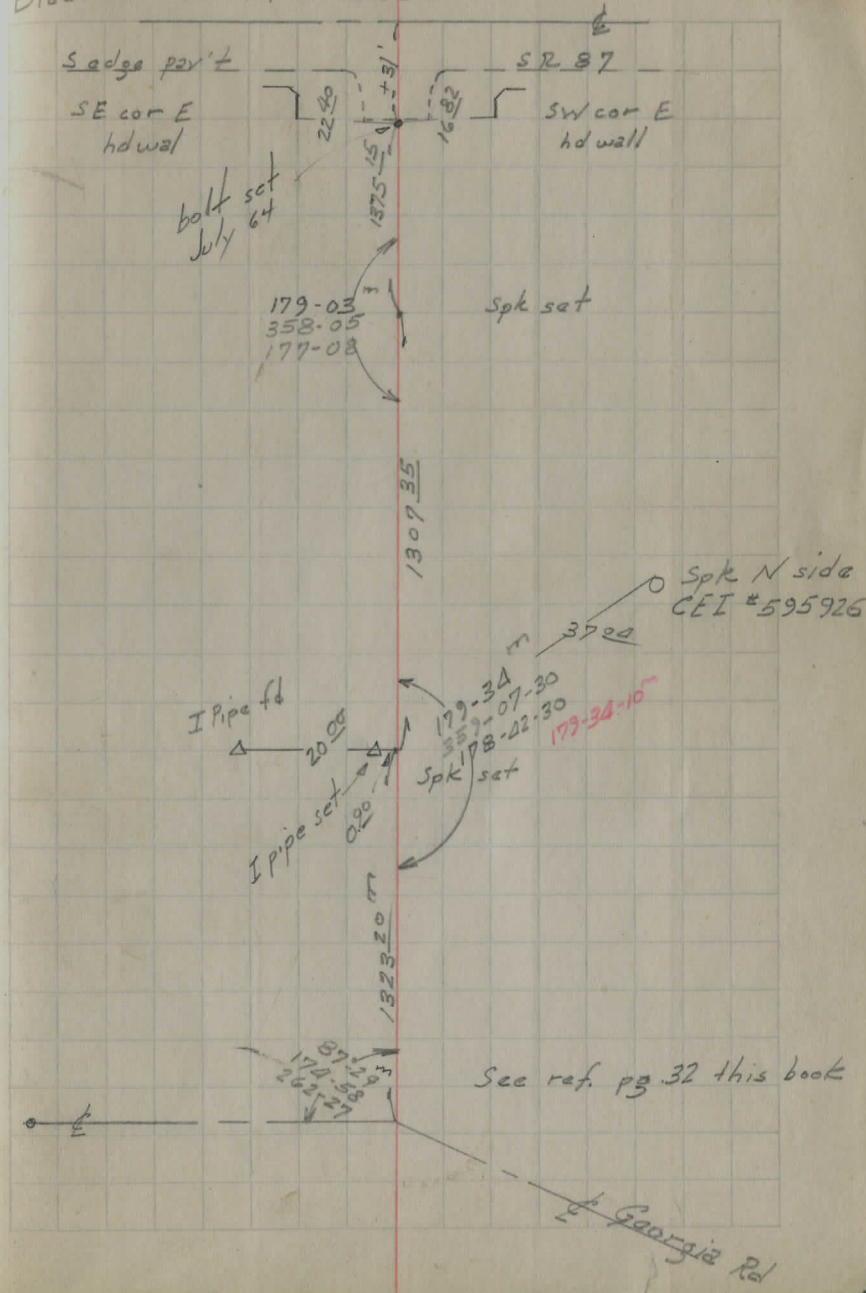 ℄
S edge pav't
SR 87
+31'
SE cor E
hd wal
22.40
16.82
SW cor E
hd wall
bolt set
July 64
1375.15
179-03
358-05
177-08
Spk set
1307.35
Spk N side
CEI #595926
179-34
359-07-30
178-42-30
179-34-10
I Pipe fd
20.00
Spk set
I pipe set
0.90
1323.20 m
87-29
174-58
262-27
See ref. pg. 32 this book
℄
℄ Georgia Rd